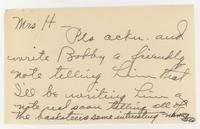 Mrs H
Pls ackn. and
write Bobby a friendly
note telling him that
I'll be writing him a
note real soon telling all of
the basketeers some interesting news